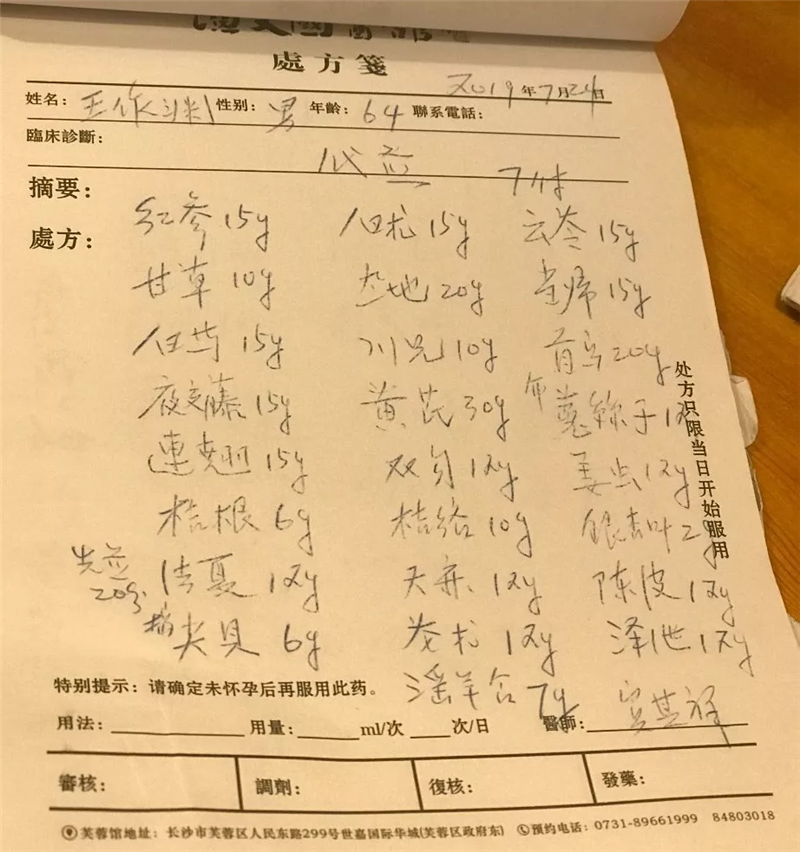 處方箋
2019年7月24日
姓名: 王作 性别: 男 年齡: 64 聯系電話:
臨床診斷:
代煎 7付
摘要:
處方: 红参 15g 白术 15g 云苓 15g
甘草 10g 熟地 20g 当归 15g
白芍 15g 川芎 10g 首乌 20g
夜交藤 15g 黄芪 30g 布 菟絲子
連翘 15g 双勾 12g 姜虫 12g
桔根 6g 桔络 10g 銀杏叶 2g
先煎 法夏 12g 天麻 12g 陈皮 12g
20分
6g 莪术 12g 泽泄 12g
淫羊合 7g
处方只限当日开始服用
特别提示：请确定未怀孕后再服用此药。
用法: 用量: ml/次 次/日 醫師:
審核: 調劑: 復核: 發藥:
芙蓉馆地址：长沙市芙蓉区人民东路299号世嘉国际华城(芙蓉区政府东) 预约电话：0731-89661999 84803018